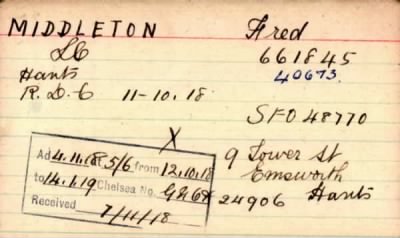 MIDDLETON Fred
LC 661845
Hants 40673.
R.D.C 11-10.18.
SFO 48770
X
Ad 4.11.18 5/6 from 12.10.18
to 14.1.19 Chelsea No.
Received 7/11/18
9 Tower St
Emsworth
24906 Hants